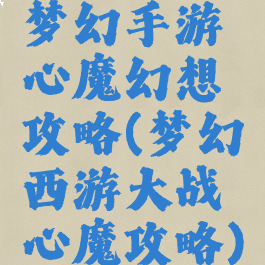 梦幻手游
心魔幻想
攻略(梦幻
西游大战
心魔攻略)